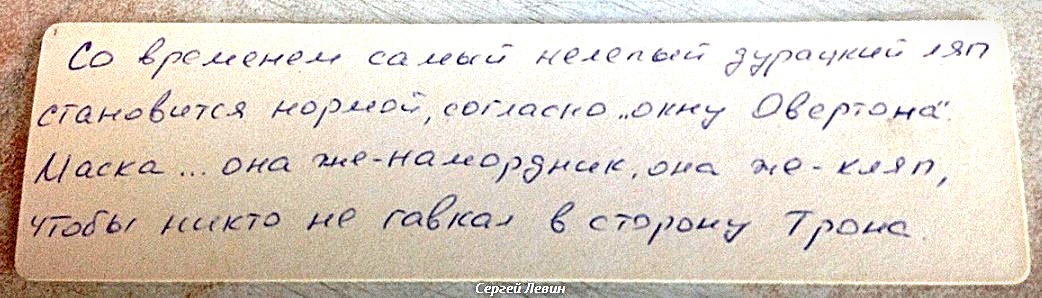 Со временем самый нелепый дурацкий ляп
становится нормой, согласно „окну Овертона".
Маска... она же-намордник, она же-кляп,
чтобы никто не гавкал в сторону Трона.
Сергей Левин